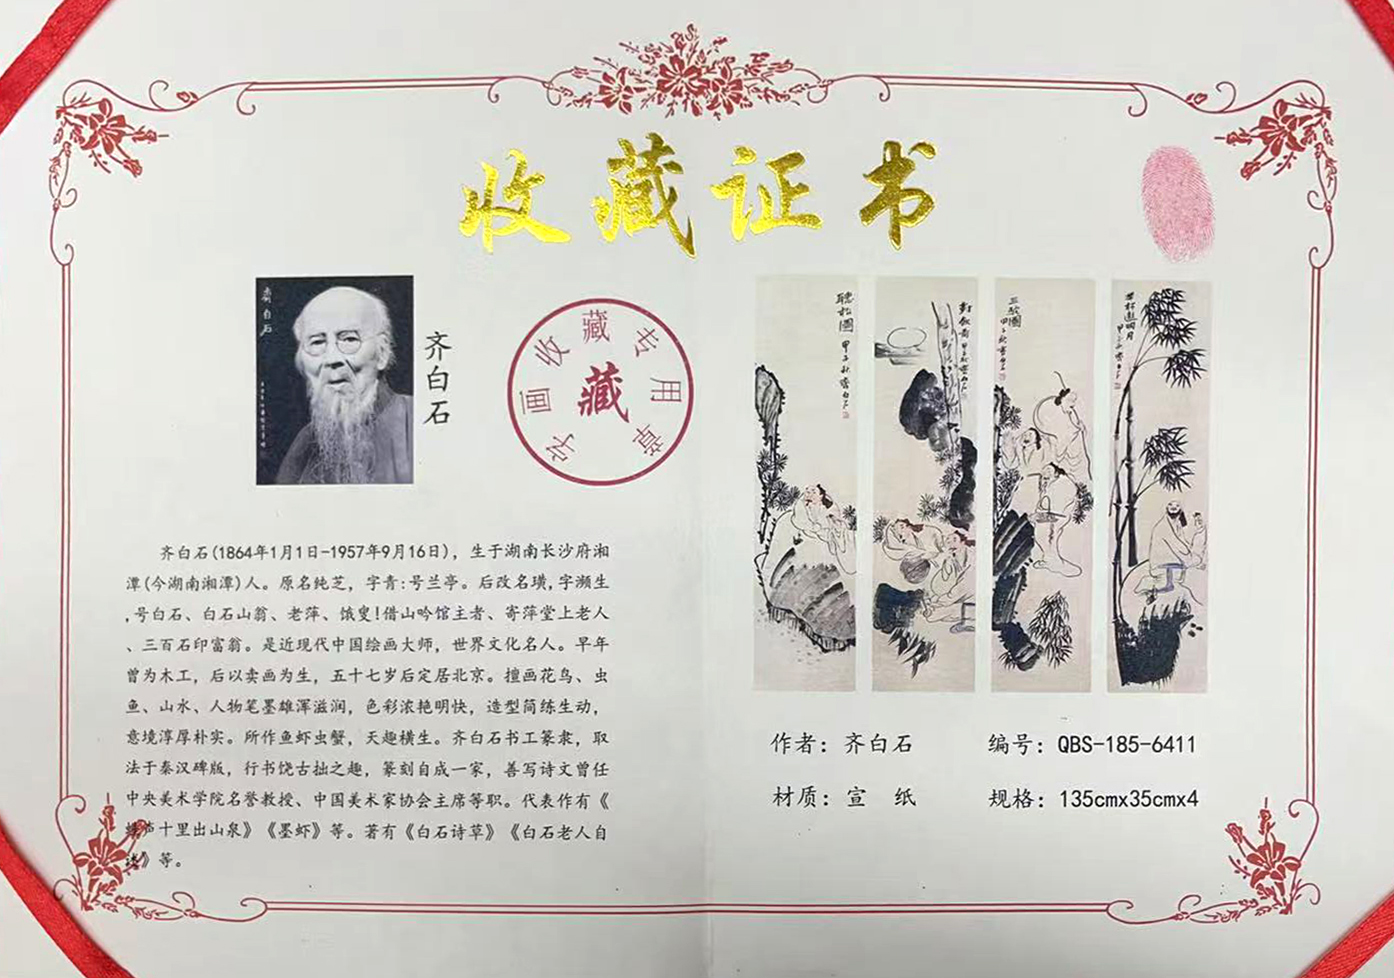 收藏证书
齐白石
齐白石
字画收藏专用章
藏
齐白石(1864年1月1日-1957年9月16日)，生于湖南长沙府湘
潭(今湖南湘潭)人。原名纯芝，字青:号兰亭。后改名璜,字濒生
,号白石、白石山翁、老萍、饿叟!借山吟馆主者、寄萍堂上老人
、三百石印富翁。是近现代中国绘画大师，世界文化名人。早年
曾为木工，后以卖画为生，五十七岁后定居北京。擅画花鸟、虫
鱼、山水、人物笔墨雄浑滋润，色彩浓艳明快，造型简练生动，
意境淳厚朴实。所作鱼虾虫蟹，天趣横生。齐白石书工篆隶，取
法于秦汉碑版，行书饶古拙之趣，篆刻自成一家，善写诗文曾任
中央美术学院名誉教授、中国美术家协会主席等职。代表作有《
蛙声十里出山泉》《墨虾》等。著有《白石诗草》《白石老人自
述》等。
聽松圖
甲子秋齊白石
三歌圖
甲子秋齊白石
舉杯邀明月
作者：齐白石
编号：QBS-185-6411
材质：宣 纸
规格：135cmx35cmx4